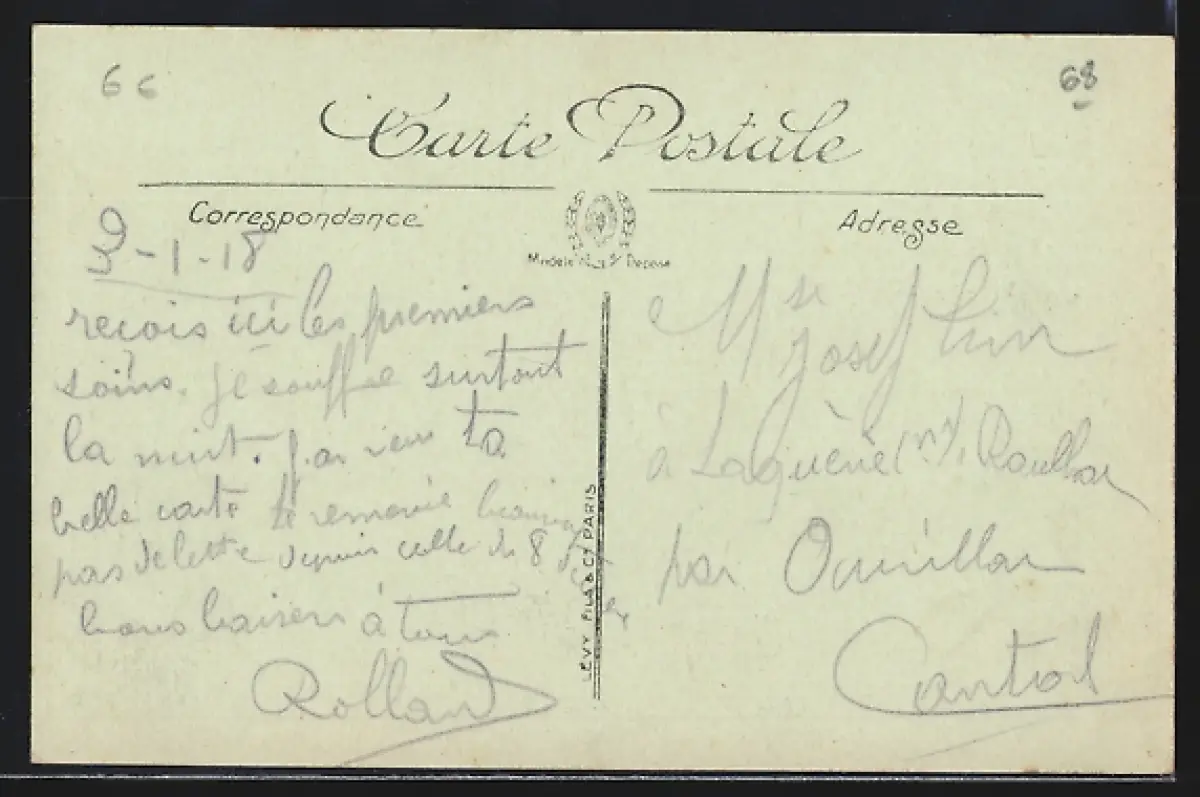 66
68
Carte Postale
Correspondance
Adresse
Modèle Déposé
9-1-18
reçois ici les premiers
soins. Je souffre surtout
la nuit. J'ai reçu ta
belle carte te remercie beaucoup
pas de lettre depuis celle du 8
bons baisers à tous
Rolland
LÉVY FILS & Cie PARIS
Joseph
à
par
Cantal